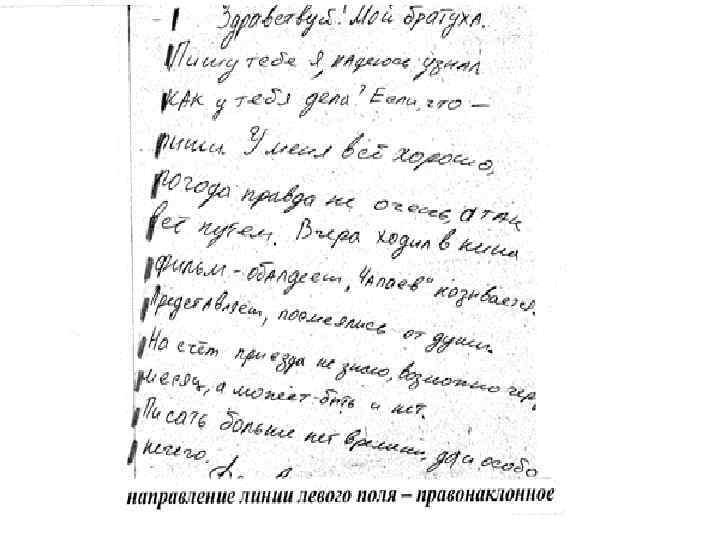 Здравствуй! Мой братуха.
Пишу тебе я, надеюсь узнал
как у тебя дела? Если, что —
пиши. У меня всё хорошо,
погода правда не очень, а так
всё путем. Вчера ходил в кина
фильм - обалдеет, "Чапаев" називается.
Представляеш, посмеялись от души.
На счёт приезда не знаю, возможно чер.
месяц, а может-быть и нет.
Писать больше нет времени, да и особо
нечего.
направление линии левого поля – правонаклонное